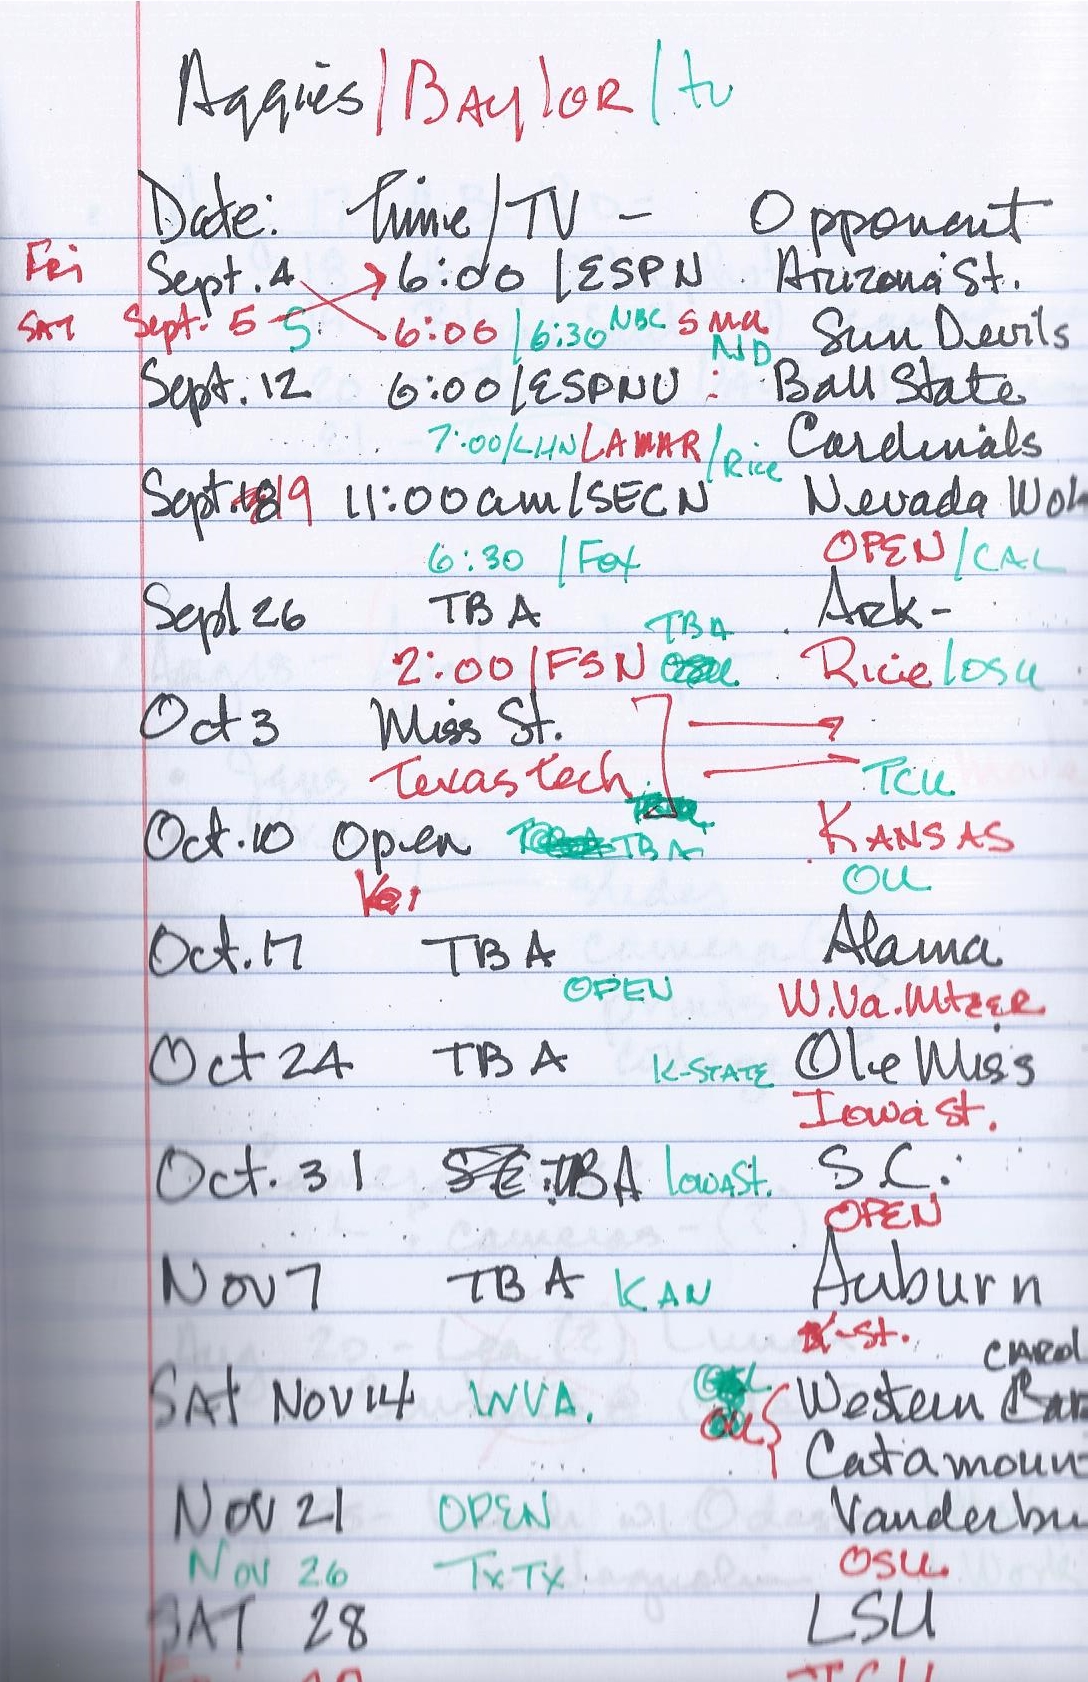 Aggies/BAYLOR/tu
Date: Time/TV - Opponent
Fri Sept. 4 6:00 /ESPN Arizona St.
SAT Sept. 5 5 6:00 /6:30 NBC SMU ND Sun Devils
Sept. 12 6:00/ESPNU : Ball State
7:00/LHN LAMAR/Rice Cardinals
Sept. 19 11:00am/SECN Nevada Wol
6:30 /Fox OPEN/CAL
Sept 26 TBA Ark-
TBA
2:00/FSN Rice/OSU
Oct 3 Miss St.
Texas Tech TCU
Oct. 10 Open TBA KANSAS
OU
Oct. 17 TBA Alama
OPEN W.Va. Mtzer
Oct 24 TBA K-STATE Ole Miss
Iowa St.
Oct. 31 TBA IOWA St. S.C.
OPEN
Nov 7 TBA KAN Auburn
K-St.
CAROL
SAt Nov 14 WVA. OU Western
Catamoun
Nov 21 OPEN Vanderbu
Nov 26 TxTX OSU
SAT 28 LSU
TCU